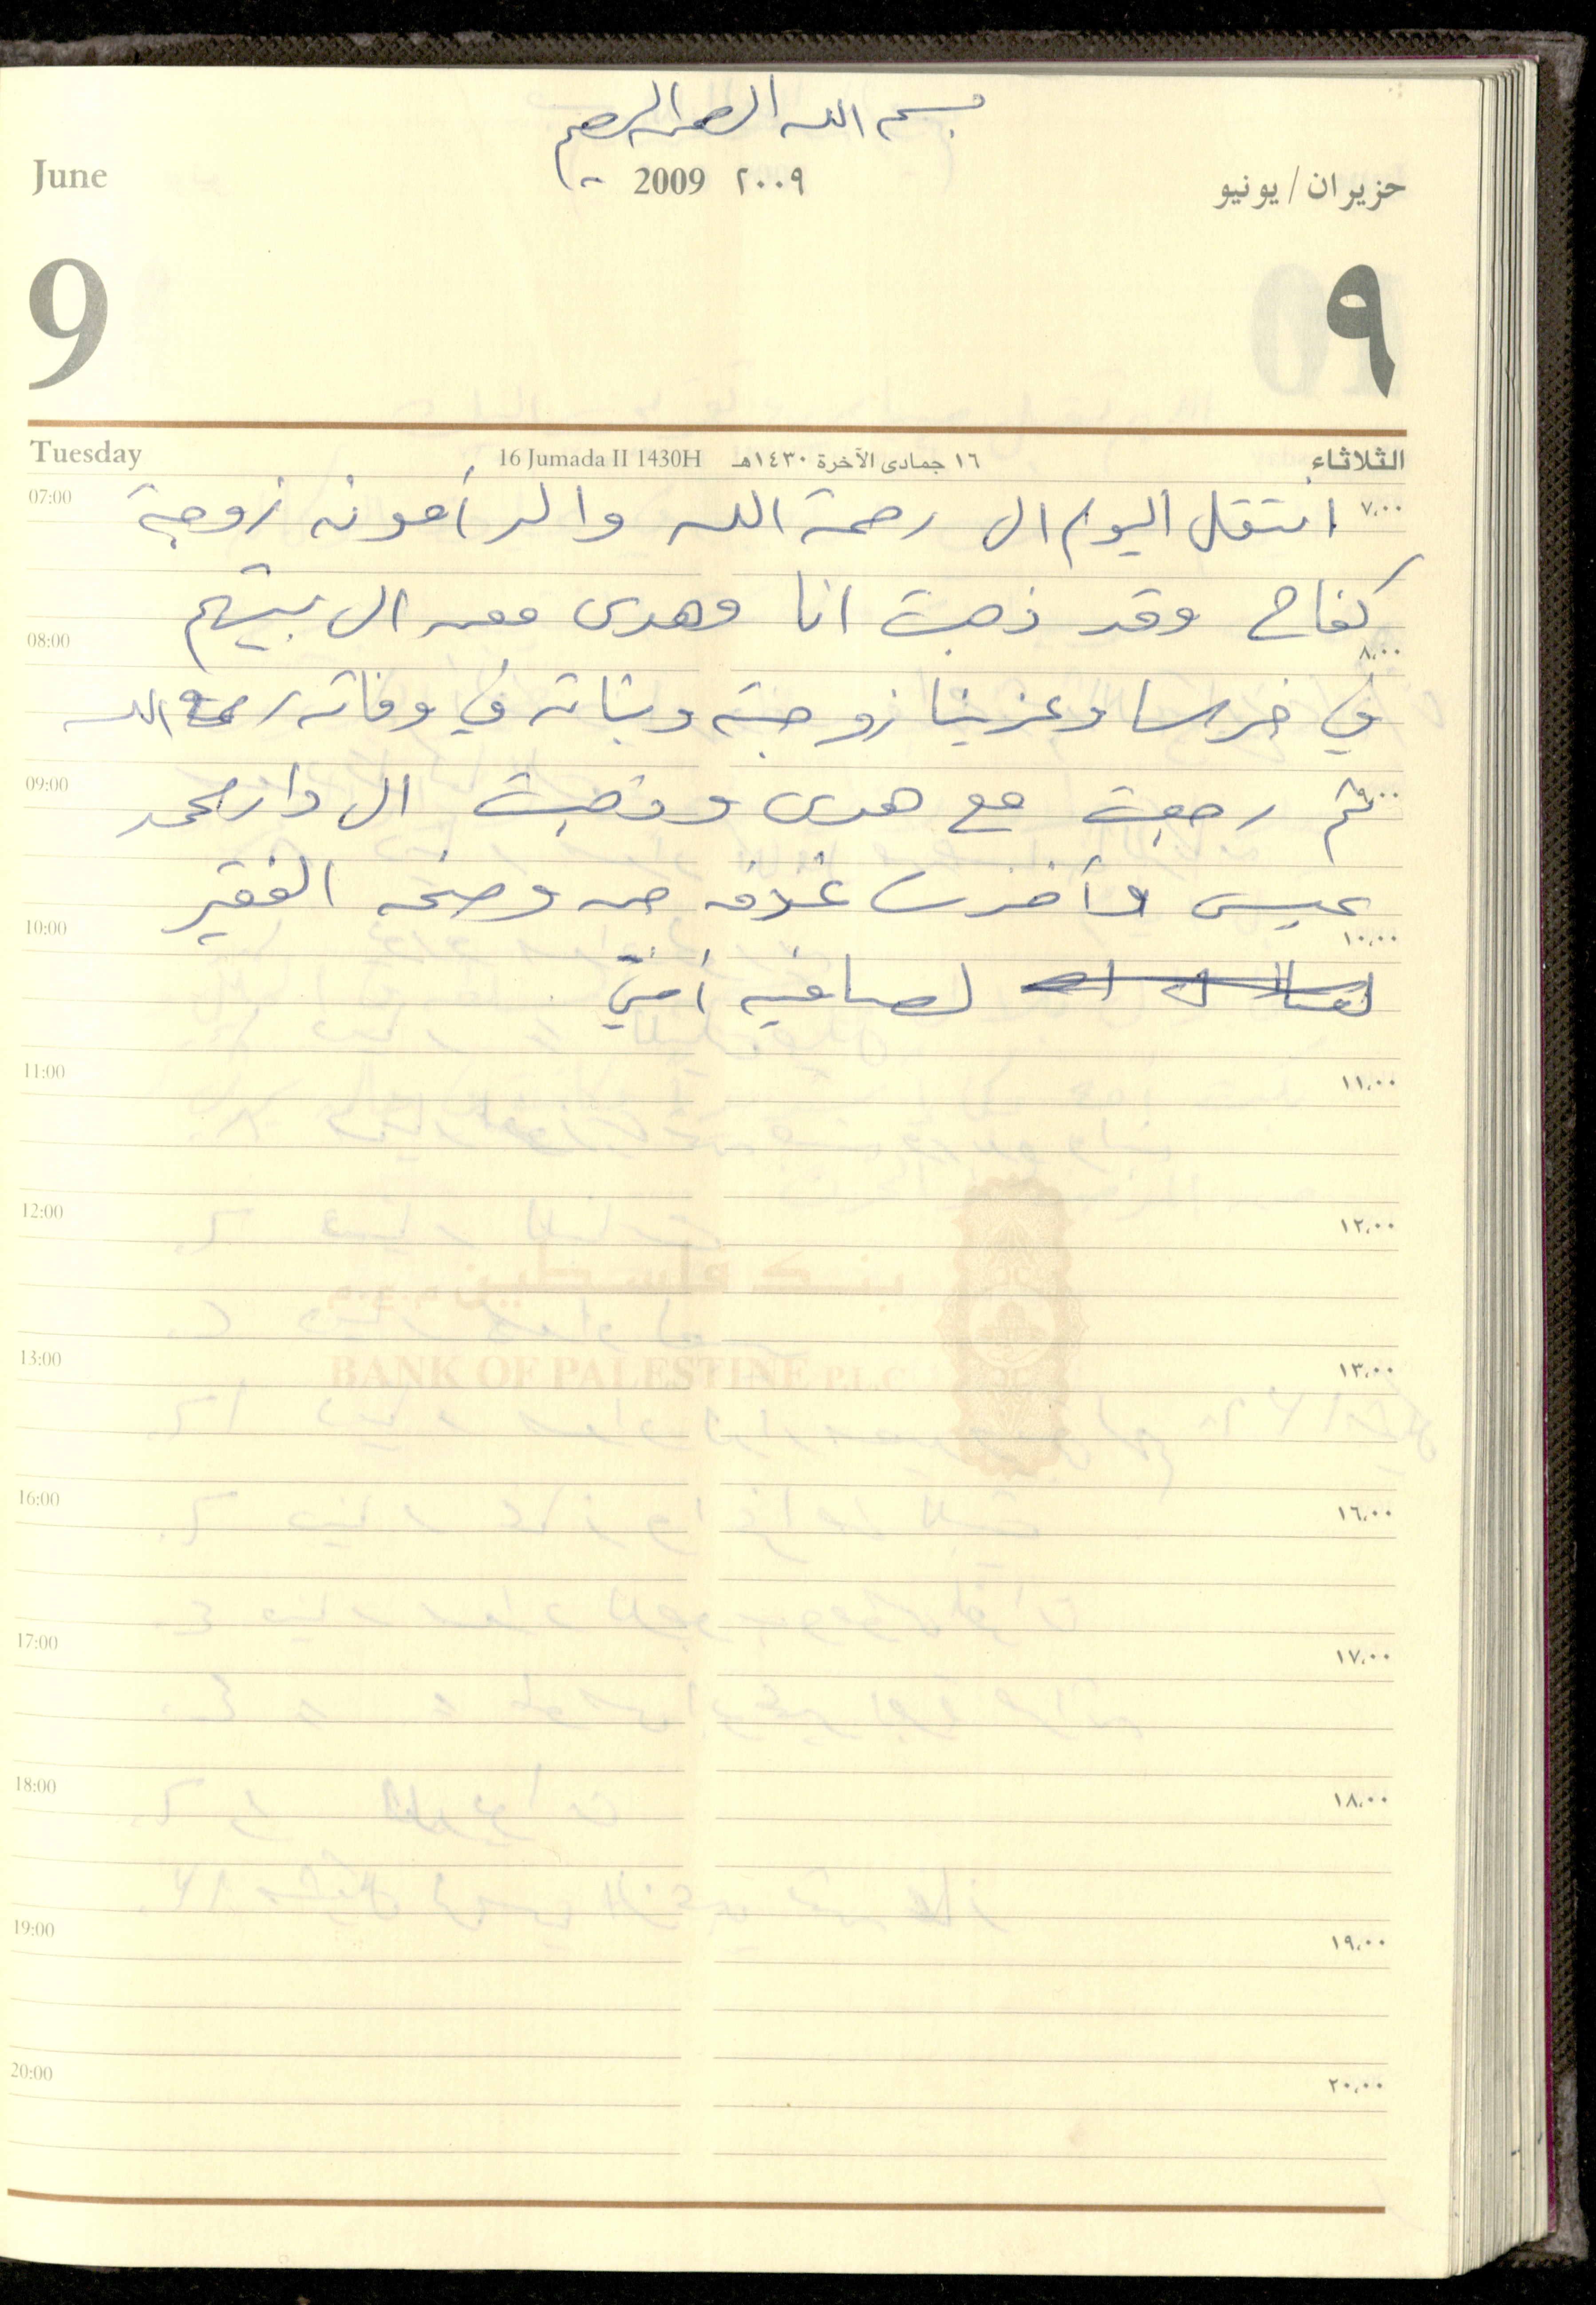 بسم الله الرحمن الرحيم
June 2009 ٢٠٠٩ حزيران / يونيو
9 ٩
Tuesday 16 Jumada II 1430H ١٦ جمادى الآخرة ١٤٣٠هـ الثلاثاء
07:00 ٧،٠٠
انتقل اليوم الى رحمة الله والد أمونه زوجة
كفاح وقد ذهبت انا وهدى معه الى بيتهم
08:00 ٨،٠٠
في خرسا وعزينا زوجته وبناته في وفاته رحمه الله
09:00 ٩،٠٠
ثم رجعت مع هدى وذهبت الى دار محمد
عيسى وأخذت غرفه من الفقير
10:00 ١٠،٠٠
لصافيه أختي
11:00 ١١،٠٠
12:00 ١٢،٠٠
بنك فلسطين م.ع.م
13:00 ١٣،٠٠
BANK OF PALESTINE P.L.C
16:00 ١٦،٠٠
17:00 ١٧،٠٠
18:00 ١٨،٠٠
19:00 ١٩،٠٠
20:00 ٢٠،٠٠